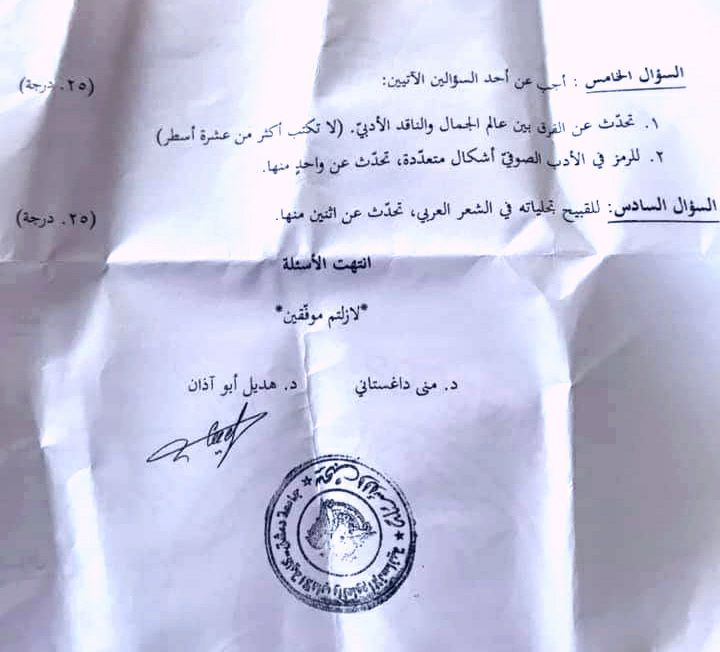 السؤال الخامس: أجب عن أحد السؤالين الآتيين: (٢٥. درجة)
١. تحدّث عن الفرق بين عالم الجمال والناقد الأدبيّ. (لا تكتب أكثر من عشرة أسطر)
٢. للرمز في الأدب الصوفيّ أشكال متعدّدة، تحدّث عن واحدٍ منها.
السؤال السادس: للقبيح تجلياته في الشعر العربي، تحدّث عن اثنين منها. (٢٥. درجة)
انتهت الأسئلة
*لازلتم موفّقين*
د. منى داغستاني د. هديل أبو آذان
جامعة دمشق - كلية الآداب والعلوم الإنسانية